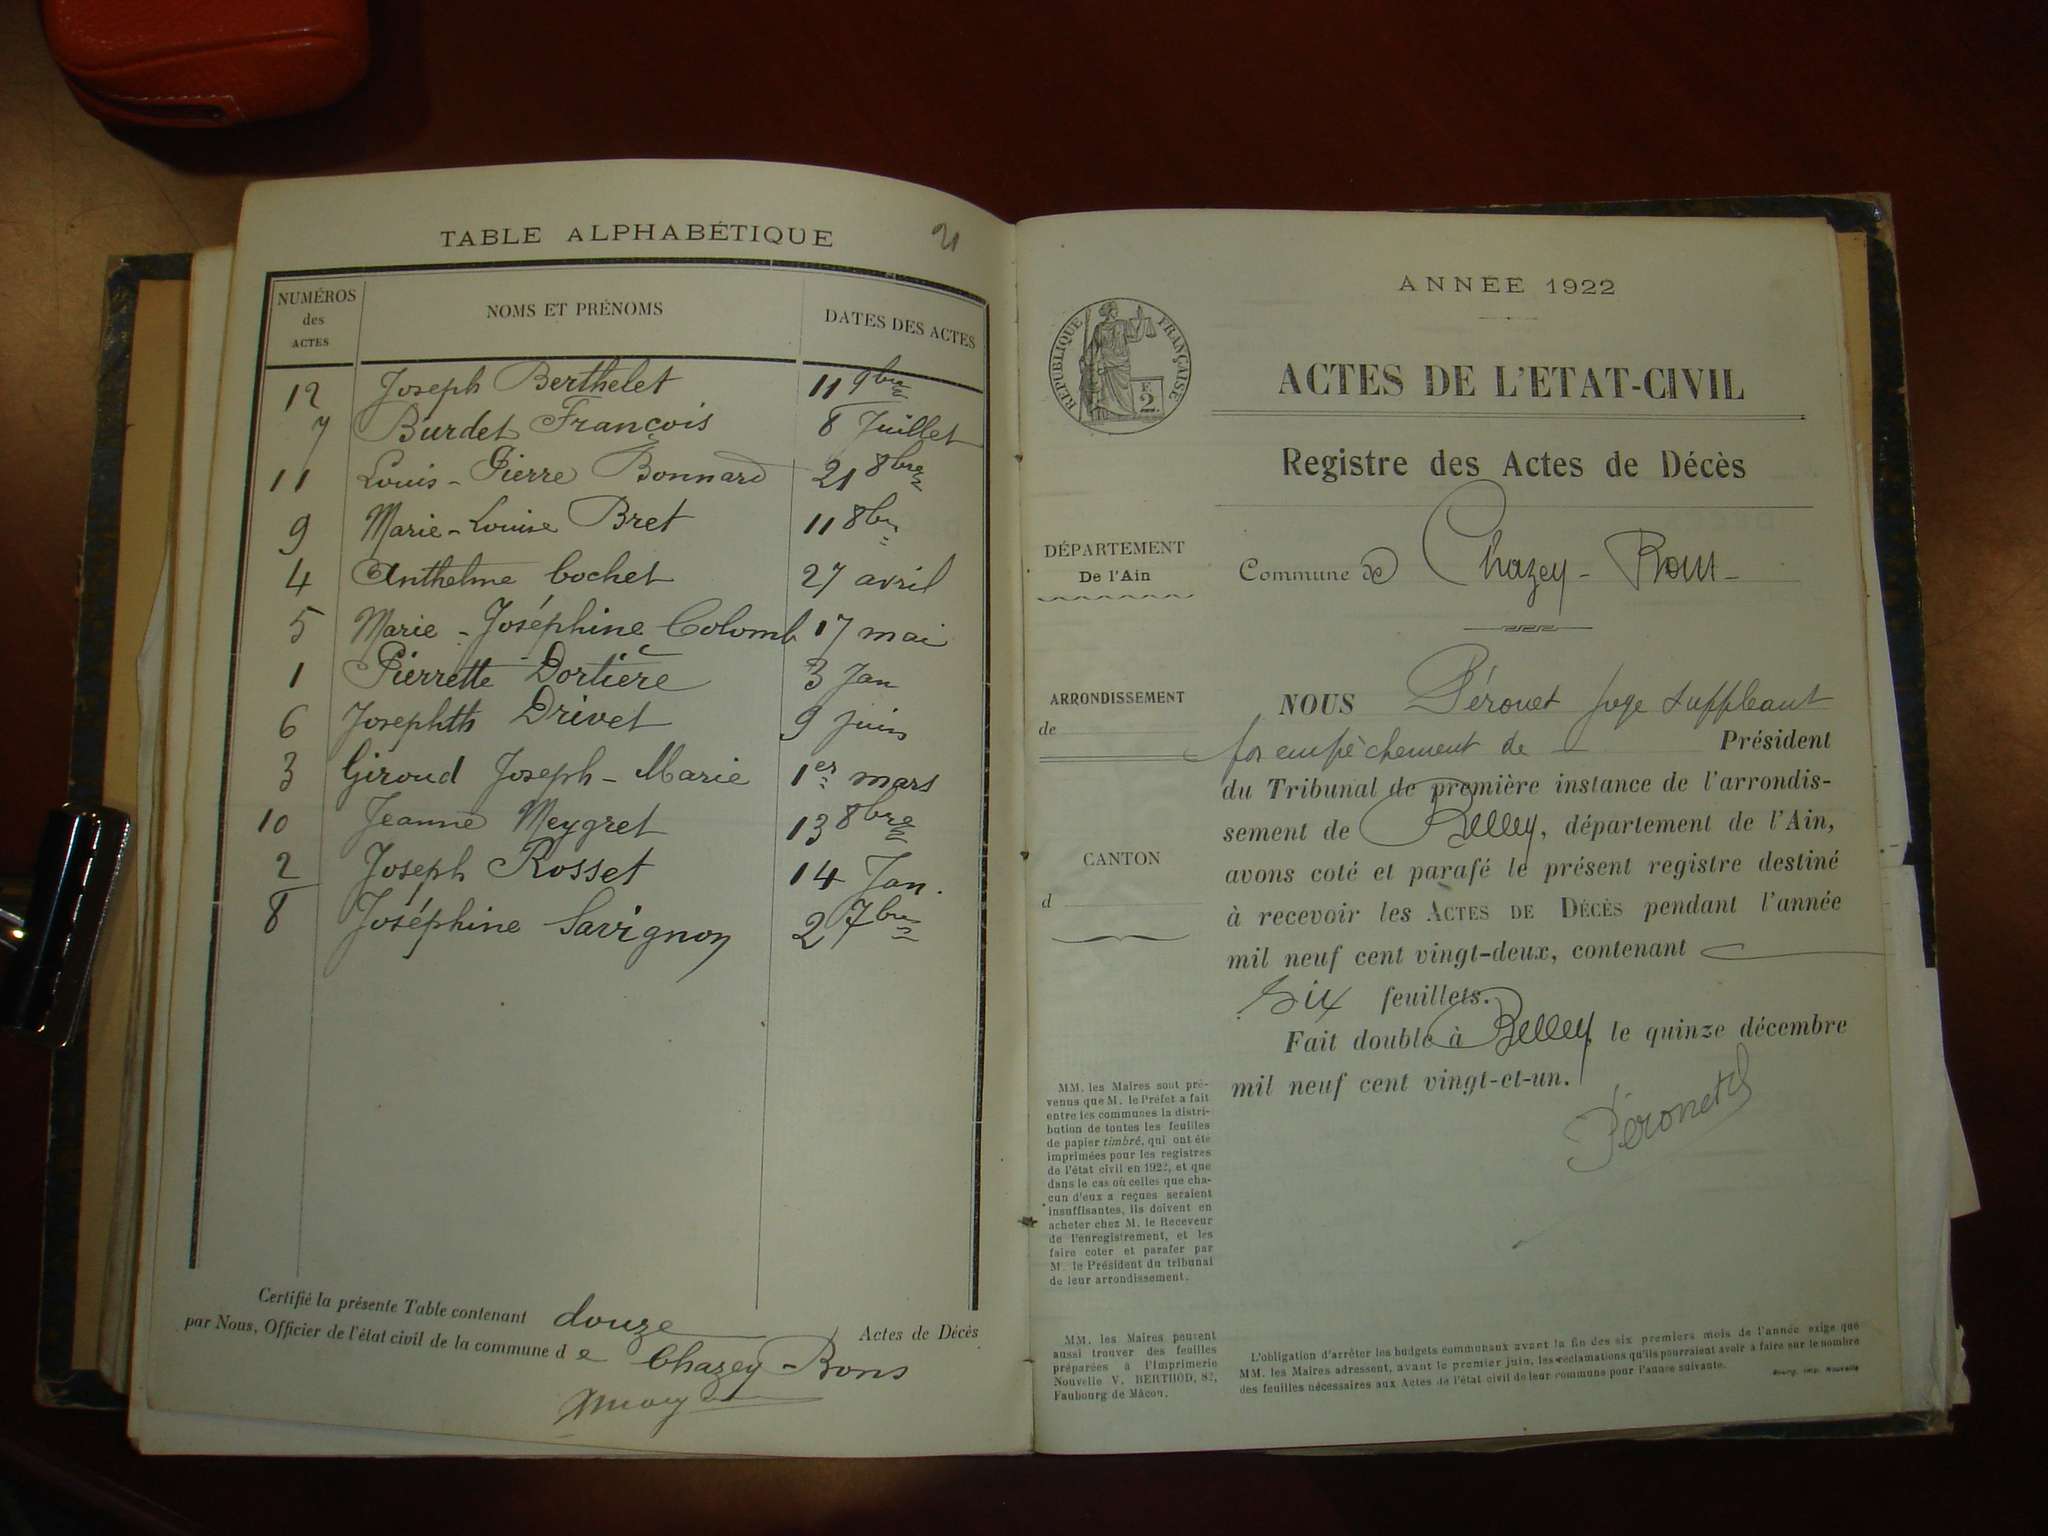 TABLE ALPHABÉTIQUE
21
NUMÉROS des ACTES NOMS ET PRÉNOMS DATES DES ACTES
12 Joseph Berthelet 11 9bre
7 Burdet François 8 Juillet
11 Louis-Pierre Bonnard 21 8bre
9 Marie-Louise Bret 11 8bre
4 Anthelme Cochet 27 avril
5 Marie-Joséphine Colomb 17 mai
1 Pierrette Dortière 3 Jan
6 Josephth Drivet 9 juin
3 Giroud Joseph-Marie 1er mars
10 Jeanne Meygret 13 8bre
2 Joseph Rosset 14 Jan.
8 Joséphine Savignon 2 7bre
Certifié la présente Table contenant douze Actes de Décès
par Nous, Officier de l'état civil de la commune de Chazey-Bons
ANNÉE 1922
RÉPUBLIQUE FRANÇAISE
2
ACTES DE L'ETAT-CIVIL
Registre des Actes de Décès
DÉPARTEMENT
De l'Ain
Commune de Chazey-Bons
ARRONDISSEMENT
de
CANTON
d
NOUS Péronet Juge suppléant
par empêchement de Président
du Tribunal de première instance de l'arrondis-
sement de Belley, département de l'Ain,
avons coté et parafé le présent registre destiné
à recevoir les ACTES DE DÉCÈS pendant l'année
mil neuf cent vingt-deux, contenant
six feuillets.
Fait double à Belley, le quinze décembre
mil neuf cent vingt-et-un.
Péronet
MM. les Maires sont pré-
venus que M. le Préfet a fait
entre les communes la distri-
bution de toutes les feuilles
de papier timbré, qui ont été
imprimées pour les registres
de l'état civil en 1922, et que
dans le cas où celles que cha-
cun d'eux a reçues seraient
insuffisantes, ils doivent en
acheter chez M. le Receveur
de l'enregistrement, et les
faire coter et parafer par
M. le Président du tribunal
de leur arrondissement.
MM. les Maires peuvent
aussi trouver des feuilles
préparées à l'Imprimerie
Nouvelle V. BERTHOD, 82,
Faubourg de Mâcon.
L'obligation d'arrêter les budgets communaux avant la fin des six premiers mois de l'année exige que
MM. les Maires adressent, avant le premier juin, les réclamations qu'ils pourraient avoir à faire sur le nombre
des feuilles nécessaires aux Actes de l'état civil de leur commune pour l'année suivante.
Bourg, imp. Nouvelle